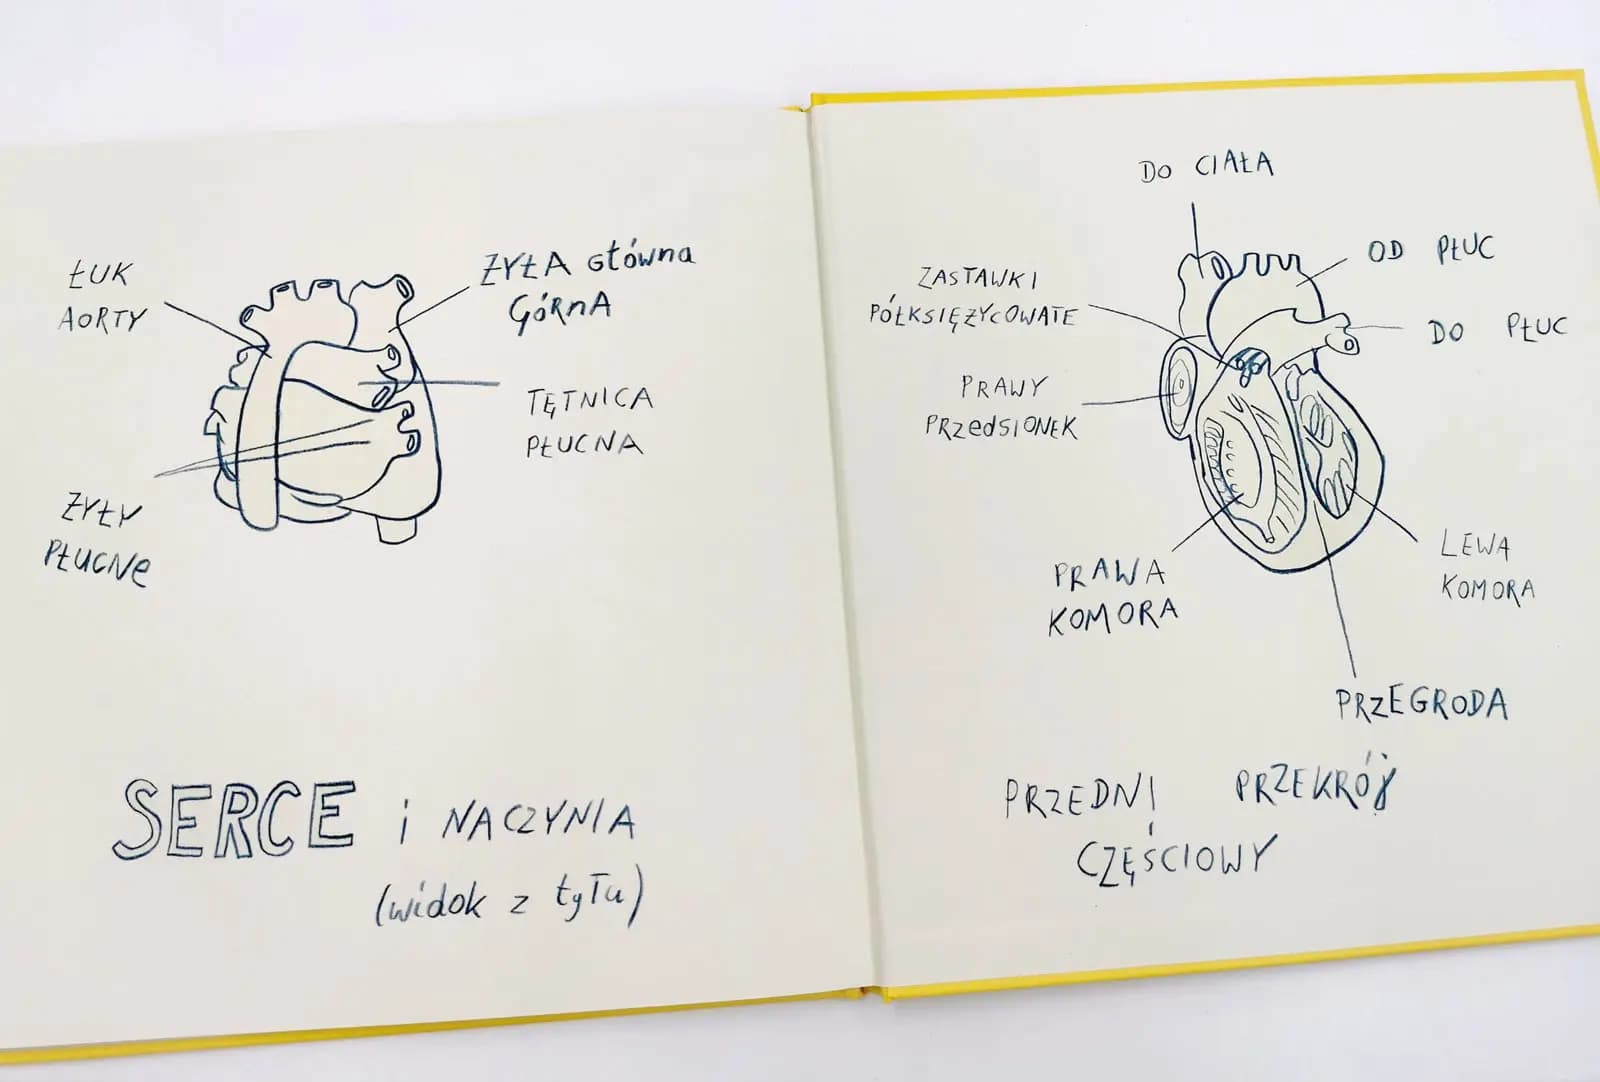 ŁUK
AORTY
ŻYŁA GŁówna
GÓRnA
TĘTNICA
PŁUCNA
ŻYŁY
PŁUCNe
SERCE i NACZYNIA
(widok z tyŁu)
DO CIAŁA
OD PŁUC
DO PŁUC
ZASTAWKI
PÓŁKSIĘŻYCOWATE
PRAWY
PRZedSIONEK
PRAWA
KOMORA
LEWA
KOMORA
PRZEGRODA
PRZEDNI PRZEKRÓJ
CZĘŚCIOWY